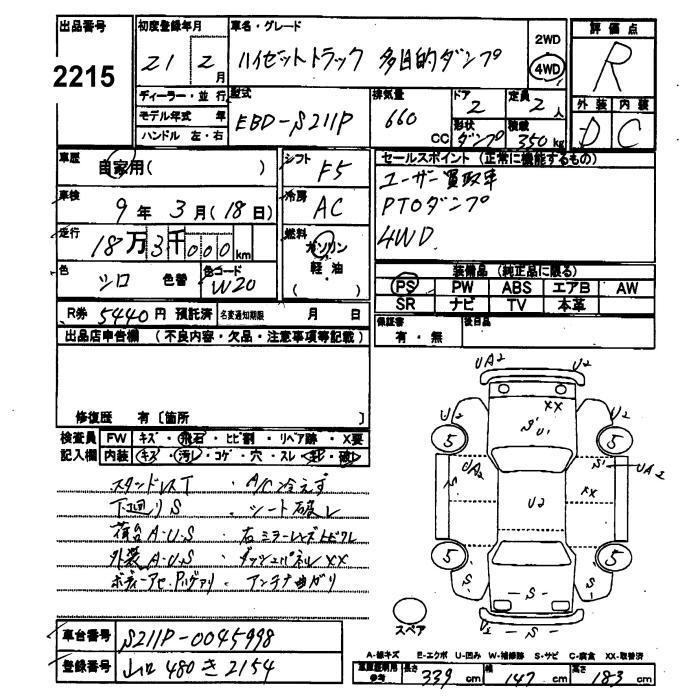 出品番号 2215
初度登録年月 21 2月
車名・グレード ハイゼットトラック 多目的ダンプ
2WD 4WD
評価点 R
外装 内装
D C
ディーラー・並行
モデル年式 年
ハンドル 左・右
型式 EBD-S211P
排気量 660 CC
ドア 2
形状 ダンプ
定員 2人
積載 350kg
車歴 自家用( )
車検 9年3月(18日)
走行 18万3千000km
色 シロ 色替
色コード W20
シフト F5
冷房 AC
燃料 ガソリン
軽油
( )
セールスポイント(正常に機能するもの)
ユーザー買取車
PTOダンプ
4WD
装備品(純正品に限る)
PS PW ABS エアB AW
SR ナビ TV 本革
保証書 有・無
後日品
R券 5440円 預託済 名変通知期限 月 日
出品店申告欄(不良内容・欠品・注意事項等記載)
修復歴 有〔箇所 〕
検査員 FW キズ・飛石・ヒビ割・リペア跡・X要
記入欄 内装 キズ・汚レ・コゲ・穴・スレ
スタンドレスT ・A/C冷えず
下回りS ・シート破レ
荷台A・U・S
外装A・U・S ・ダッシュパネルXX
・アンテナ曲ガリ
UA2 U2
U2 U2
XX
S' U1
5 5
UA2 S' UA2
S XX
U2
5 5
S S
S
S
スペア
車台番号 S211P-0045998
登録番号 山口 480 き 2154
A-線キズ E-エクボ U-凹み W-補修跡 S-サビ C-腐食 XX-取替済
車庫証明用参考 長さ 339 cm 幅 147 cm 高さ 183 cm